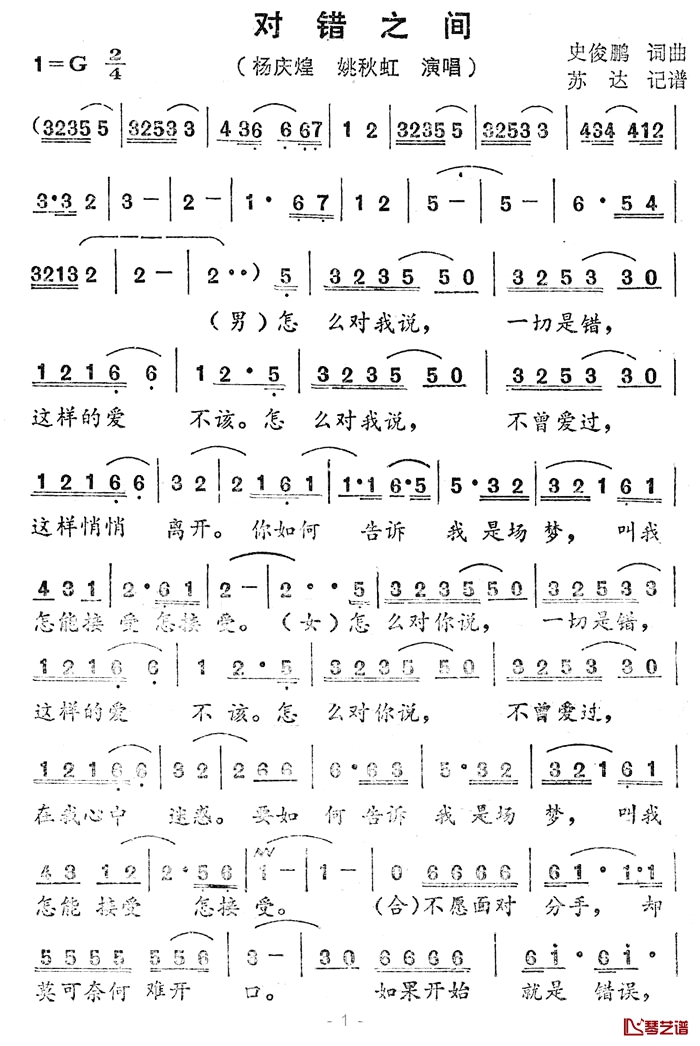 对错之间
1=G 2/4
(杨庆煌 姚秋虹 演唱)
史俊鹏 词曲
苏达 记谱
(32355 | 32533 | 436 667 | 1 2 | 32355 | 32533 | 434 412
3·32 | 3 - | 2 - | 1· 67 | 12 | 5 - | 5 - | 6·54
32132 | 2 - | 2··) 5 | 3235 50 | 3253 30
(男)怎 么对我说, 一切是错,
1216 6 | 12·5 | 3235 50 | 3253 30
这样的爱 不该。怎 么对我说, 不曾爱过,
12166 | 32 | 2161 | 1·1 6·5 | 5·32 | 321 61
这样悄悄 离开。你如何 告诉 我是场梦,叫我
431 | 2·61 | 2 - | 2··5 | 323550 | 32533
怎能接受怎接受。(女)怎么对你说, 一切是错,
1216 6 | 1 2·5 | 3235 50 | 3253 30
这样的爱 不该。怎 么对你说, 不曾爱过,
12166 | 32 | 266 | 6·63 | 5·32 | 321 61
在我心中 迷惑。要如何告诉我是场梦,叫我
43 12 | 2·56 | 1 - | 1 - | 0 6666 | 61· 1·1
怎能接受 怎接受。 (合)不愿面对 分手, 却
5555 556 | 3 - | 30 6666 | 6i· 6i·
莫可奈何难开 口。 如果开始 就是错误,
- 1 -
琴艺谱